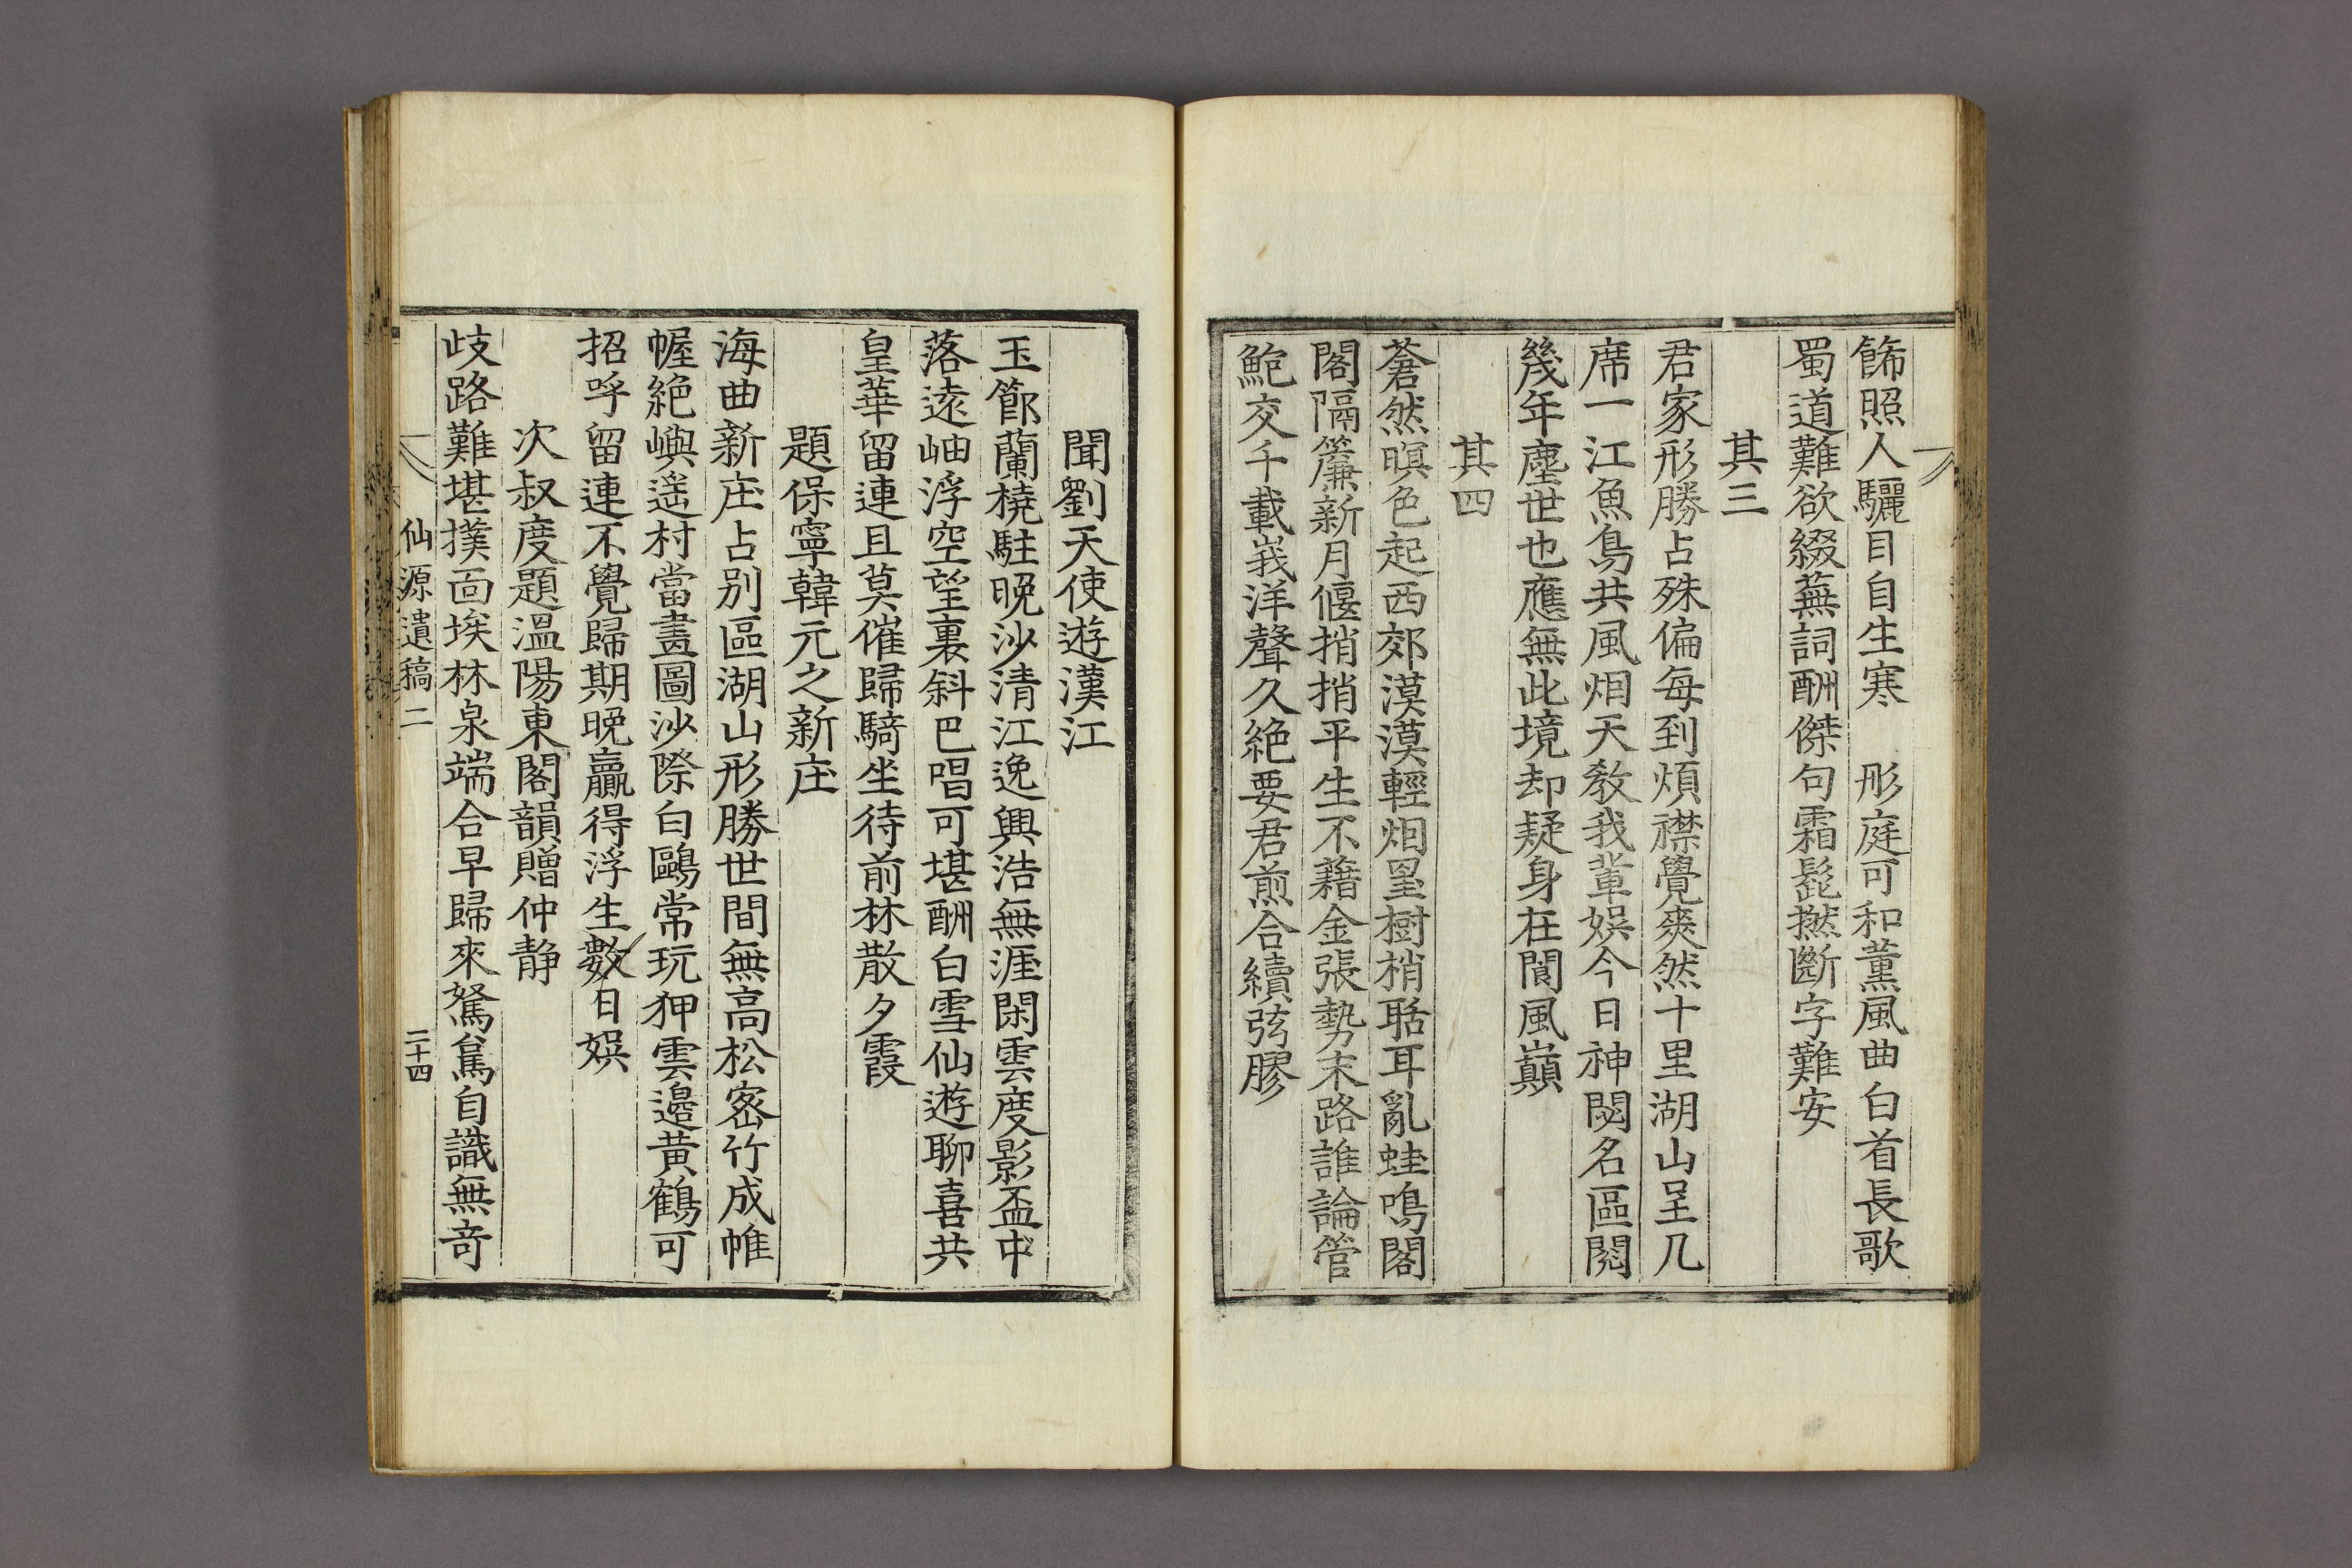 飾照人驪目自生寒　彤庭可和薰風曲白首長歌
蜀道難欲綴蕪詞酬傑句霜髭撚斷字難安
其三
君家形勝占殊偏每到煩襟覺爽然十里湖山呈几
席一江魚鳥共風烟天教我輩娛今日神閟名區閱
幾年塵世也應無此境却疑身在閬風巔
其四
蒼然暝色起西郊漠漠輕烟羃樹梢聒耳亂蛙鳴閣
閣隔簾新月偃捎捎平生不藉金張勢末路誰論管
鮑交千載峩洋聲久絶要君煎合續弦膠
聞劉天使遊漢江
玉節蘭橈駐晩沙清江逸興浩無涯閑雲度影盃中
落遠岫浮空望裏斜巴唱可堪酬白雪仙遊聊喜共
皇華留連且莫催歸騎坐待前林散夕霞
題保寧韓元之新庄
海曲新庄占別區湖山形勝世間無高松密竹成帷
幄絶嶼遙村當畫圖沙際白鷗常玩狎雲邊黃鶴可
招呼留連不覺歸期晩贏得浮生數日娛
次叔度題溫陽東閣韻贈仲靜
歧路難堪撲面埃林泉端合早歸來駑駘自識無奇
仙源遺稿二
二十四